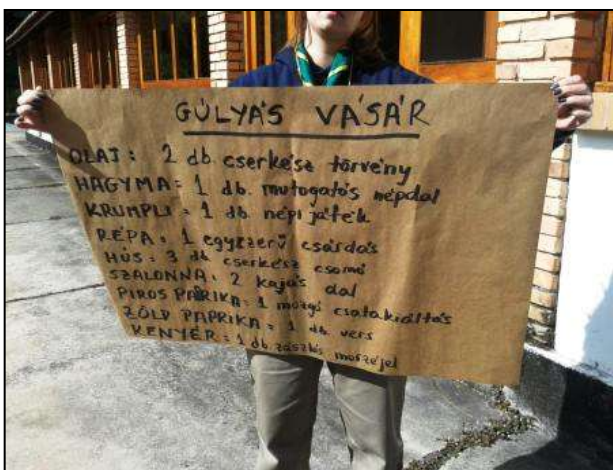 GÚLYÁS VÁSÁR
OLAJ: 2 db cserkész törvény
HAGYMA = 1 db. mutogatós népdal
KRUMPLI = 1 db. népi játék
RÉPA: 1 egyszerű csárdás
HÚS: 3 db cserkész csomó
SZALONNA: 2 kajás dal
PIROS PAPRIKA: 1 mozgó csatakiáltás
ZÖLD PAPRIKA = 1 db. vers
KENYÉR = 1 db zászlós morzéjel